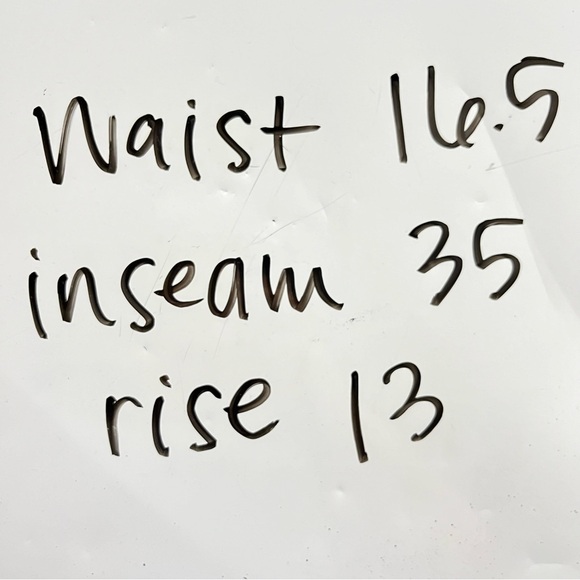 Waist 16.5
inseam 35
rise 13